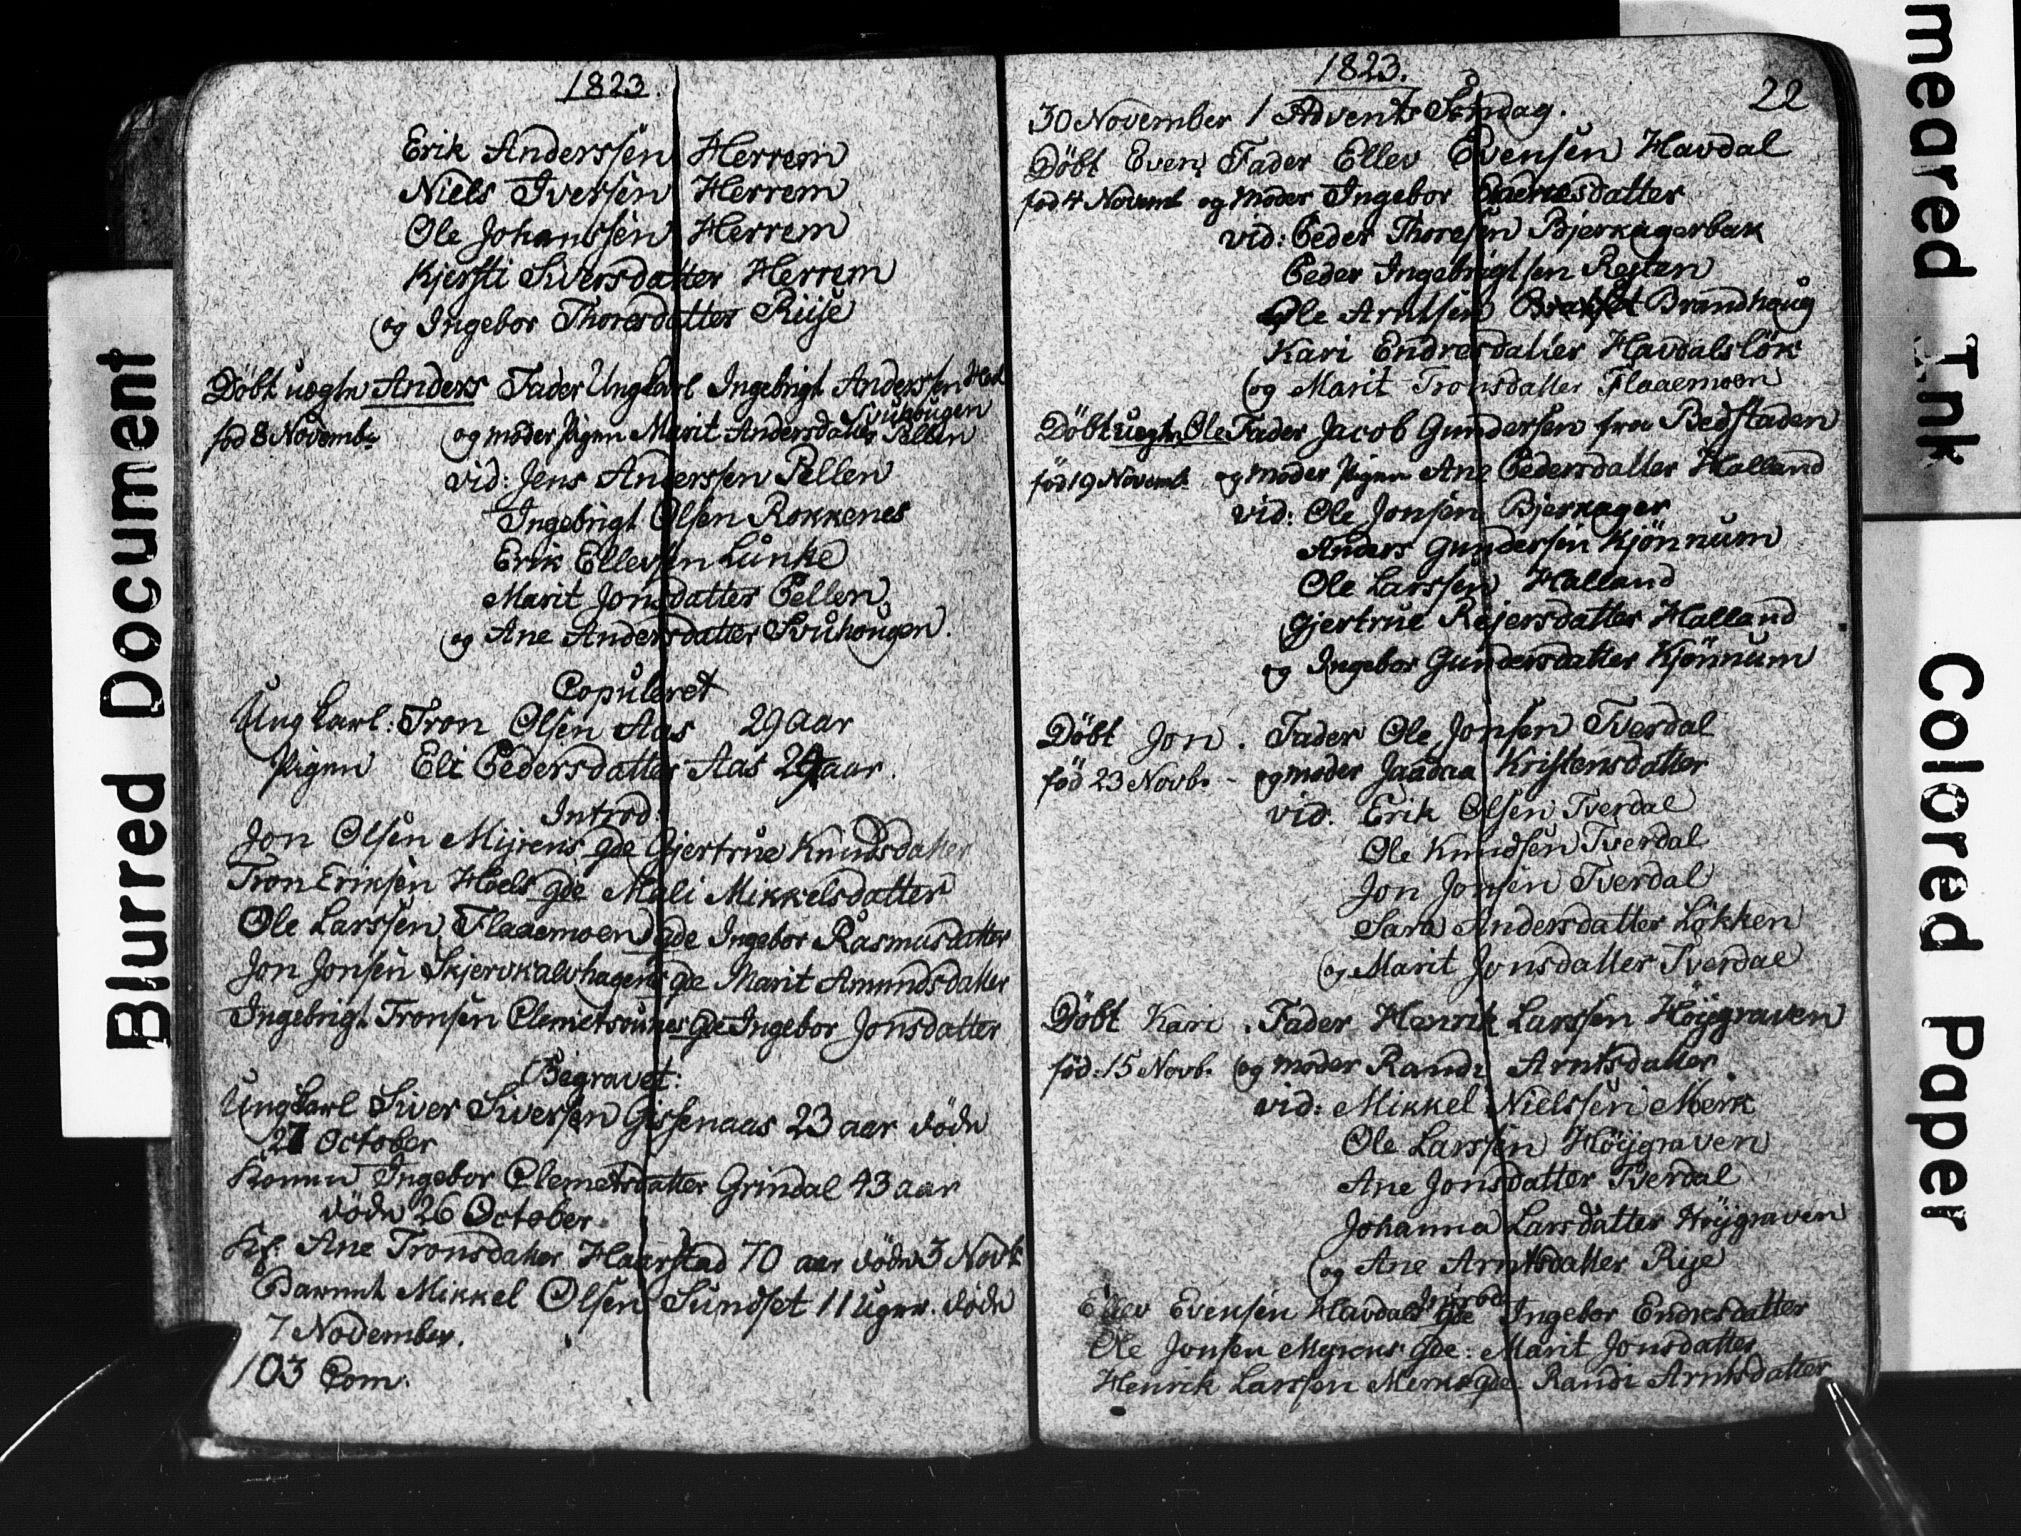 1823.
Erik Anderssen Herrem
Niels Iversen Herrem
Ole Johanssen Herrem
Kjersti Siversdatter Herrem
og Ingebor Thoresdatter Riise
Døbt uegte Anders Fader Ungkarl Ingebrigt Anderssen
Svuhougen
fød 8 Novembr og moder Pigen Marit Andersdatter Pellen
vid: Jens Anderssen Pellen
Ingebrigt Olsen Rokkenes
Erik Ellevsen Lunke
Marit Jonsdatter Pellen
og Ane Andersdatter Svuhougen.
Copuleret
Ung karl: Tron Olsen Aas 29 aar
Pigen Eli Pedersdatter Aas aar.
Introd:
Jon Olsen Myrens gde Gjertrue Knudsdatter
Tron Eriksen Hoels gde Mali Mikkelsdatter
Ole Larssen Flaaemoen gde Ingebor Rasmusdatter
Jon Jonsen Skjervkalvhagens gde Marit Amundsdatter
Ingebrigt Tronsen Clemetsounes gde Ingebor Jonsdatter
Begravet:
Ungkarl Siver Siversen Gissenaas 23 aar døde
27 October
Konen Ingebor Clemetsdatter Grindal 43 aar
døde 26 October
Kf: Ane Tronsdatter Haarstad 70 aar døde 3 Novbr
Barnet Mikkel Olsen Sundset 11 uger. døde
7 November.
103 Com.
1823.
22
30 November 1 Advents Søndag.
Døbt Even, Fader Ellev Evensen Havdal
fød 4 Novemb og moder Ingebor Endresdatter
vid: Peder Thoresen Bjerkagerbak
Peder Ingebrigtsen Resten
Ole Arntsen Brandhoug
Kari Endresdatter Havdalsløk
og Marit Tronsdatter Flaaemoen
Døbt uegte Ole Fader Jacob Gundersen fra Bedstaden
fød 19 Novemb. og moder Pigen Ane Pedersdatter Halland
vid: Ole Jonsen Bjerkager
Anders Gundersen Kjønnum
Ole Larssen Halland
Gjertrue Rejersdatter Halland
og Ingebor Gundersdatter Kjønnum
Døbt Jon. Fader Ole Jonsen Tverdal
fød 23 Novb. - og moder Jaadaa Kristensdatter
vid. Erik Olsen Tverdal
Ole Knudsen Tverdal
Jon Jonsen Tverdal
Sara Andersdatter Løkken
og Marit Jonsdatter Tverdal
Døbt Kari. Fader Henrik Larssen Høygraven
fød. 15 Novb. og moder Randi Arntsdatter.
vid: Mikkel Nielssen Merk
Ole Larssen Høygraven
Ane Jonsdatter Tverdal
Johanna Larsdatter Høygraven
og Ane Arntsdatter Rise
Introd
Ellev Evensen Havdals gde Ingebor Endresdatter
Ole Jonsen Myrens gde: Marit Jonsdatter
Henrik Larssen Merks gde. Randi Arntsdatter
Blurred Document
meared Ink
Colored Paper